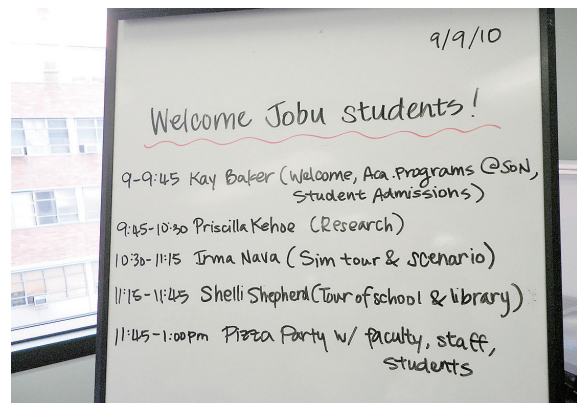 9/9/10
Welcome Jobu students!
9-9:45 Kay Baker (Welcome, Aca. Programs @SoN,
Student Admissions)
9:45-10:30 Priscilla Kehoe (Research)
10:30-11:15 Irma Nava (Sim tour & scenario)
11:15-11:45 Shelli Shepherd (Tour of school & library)
11:45-1:00pm Pizza Party w/ faculty, staff,
students